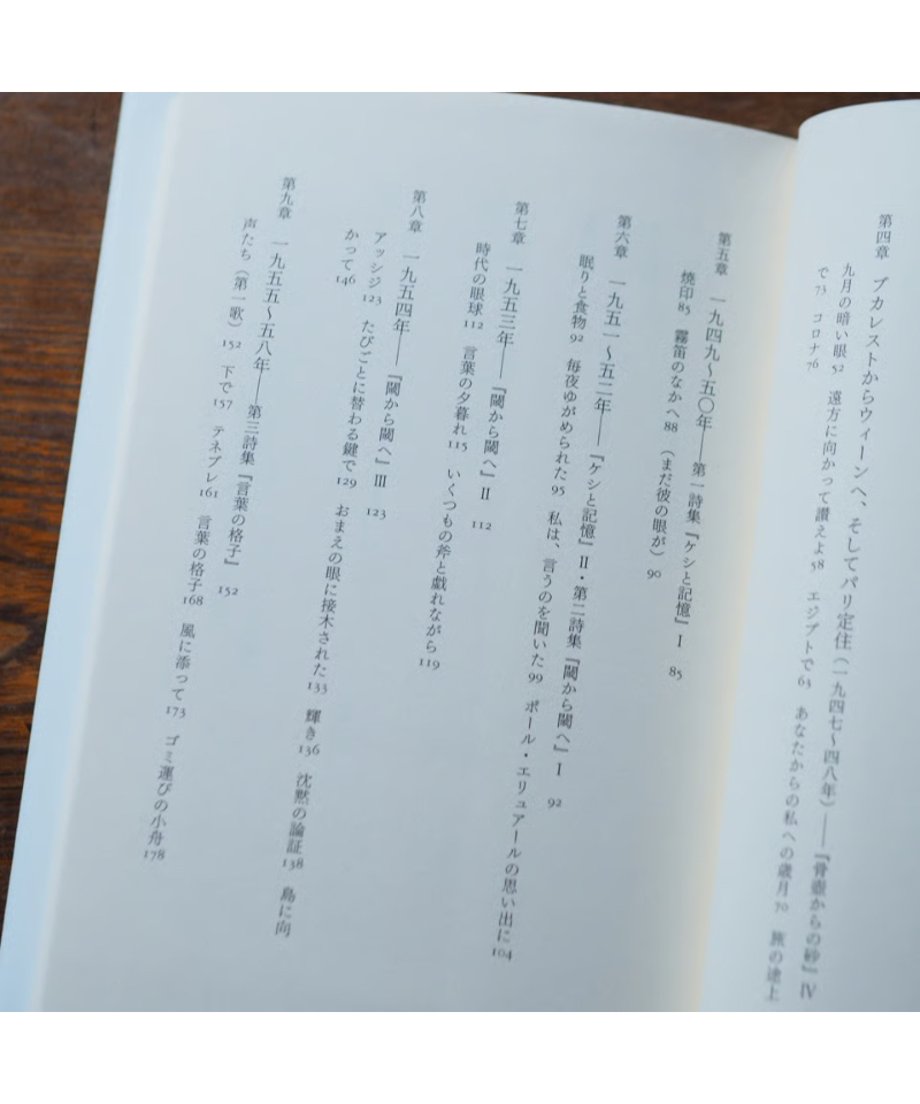 第四章　ブカレストからウィーンへ、そしてパリ定住（一九四七〜四八年）――『骨壺からの砂』Ⅳ
九月の暗い眼 52　遠方に向かって讃えよ 58　エジプトで 63　あなたからの私への歳月 70　旅の途上
で 73　コロナ 76
第五章　一九四九〜五〇年――第一詩集『ケシと記憶』Ⅰ　85
焼印 85　霧笛のなかへ 88　（まだ彼の眼が） 90
第六章　一九五一〜五二年――『ケシと記憶』Ⅱ・第二詩集『閾から閾へ』Ⅰ　92
眠りと食物 92　毎夜ゆがめられた 95　私は、言うのを聞いた 99　ポール・エリュアールの思い出に 104
第七章　一九五三年――『閾から閾へ』Ⅱ　112
時代の眼球 112　言葉の夕暮れ 115　いくつもの斧と戯れながら 119
第八章　一九五四年――『閾から閾へ』Ⅲ　123
アッシジ 123　たびごとに替わる鍵で 129　おまえの眼に接木された 133　輝き 136　沈黙の論証 138　島に向
かって 146
第九章　一九五五〜五八年――第三詩集『言葉の格子』　152
声たち（第一歌） 152　下で 157　テネブレ 161　言葉の格子 168　風に添って 173　ゴミ運びの小舟 178